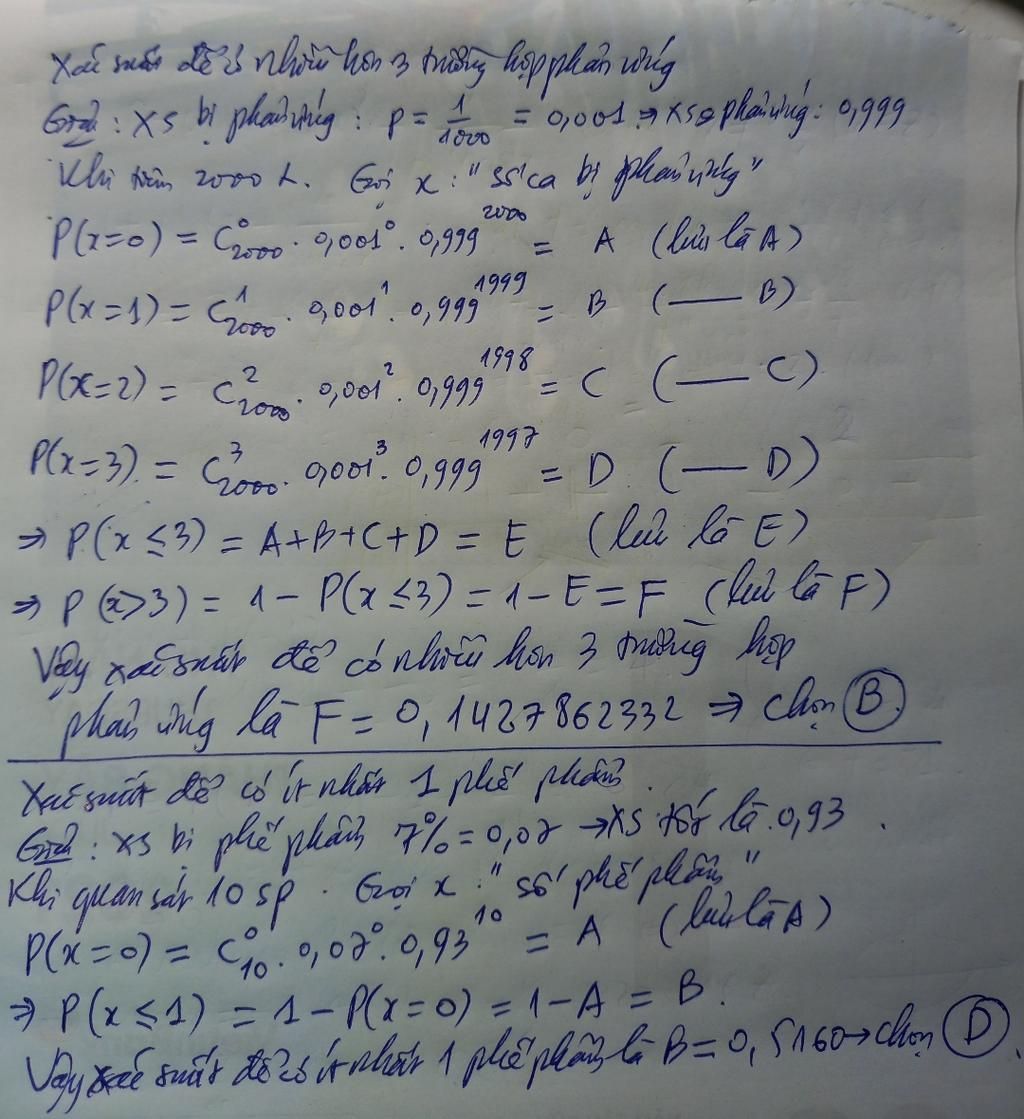 Xác suất để có nhiều hơn 3 trường hợp phản ứng
Giải: XS bị phản ứng: p = 1/1000 = 0,001 ⇒ XS ko phản ứng: 0,999
Khi tiêm 2000 L. Gọi x: "số ca bị phản ứng"
P(x=0) = C⁰₂₀₀₀ . 0,001⁰ . 0,999²⁰⁰⁰ = A (lưu là A)
P(x=1) = C¹₂₀₀₀ . 0,001¹ . 0,999¹⁹⁹⁹ = B (—— B)
P(x=2) = C²₂₀₀₀ . 0,001² . 0,999¹⁹⁹⁸ = C (—— C)
P(x=3) = C³₂₀₀₀ . 0,001³ . 0,999¹⁹⁹⁷ = D (—— D)
⇒ P(x ≤ 3) = A+B+C+D = E (lưu là E)
⇒ P(x>3) = 1 – P(x ≤ 3) = 1 – E = F (lưu là F)
Vậy xác suất để có nhiều hơn 3 trường hợp
phản ứng là F = 0,1427862332 ⇒ chọn B.
Xác suất để có ít nhất 1 phế phẩm.
Giải: XS bị phế phẩm 7% = 0,07 → XS tốt là 0,93.
Khi quan sát 10 sp. Gọi x: "số phế phẩm"
P(x=0) = C⁰₁₀ . 0,07⁰ . 0,93¹⁰ = A (lưu là A)
⇒ P(x ≤ 1) = 1 – P(x=0) = 1 – A = B.
Vậy xác suất để có ít nhất 1 phế phẩm là B = 0,5160 → chọn D.